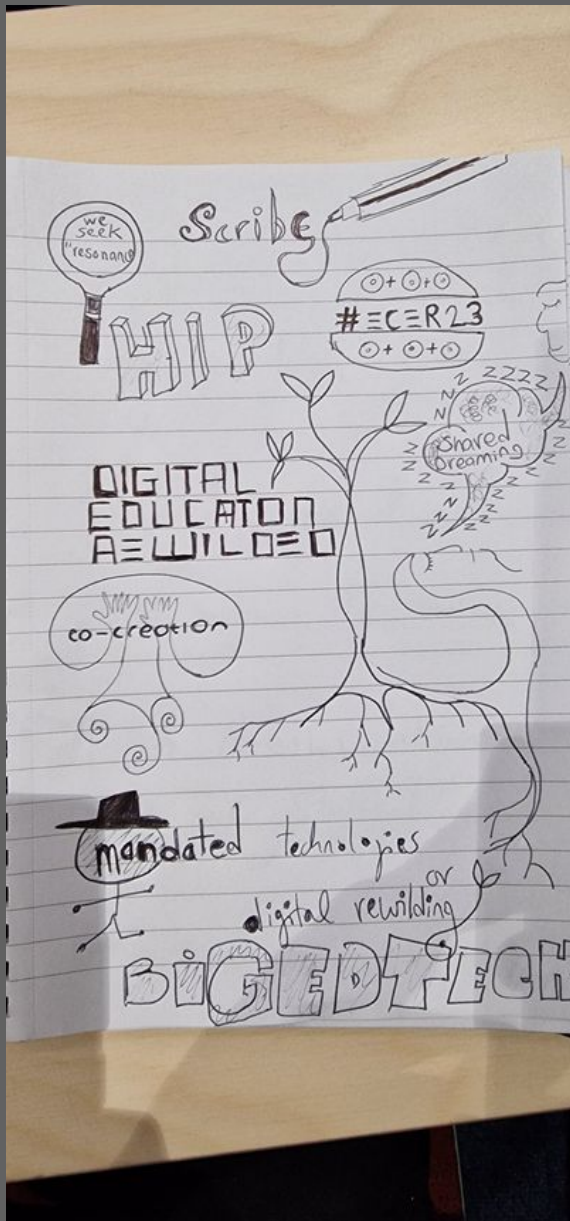 we
seek
"resonanc
Scribe
HIP
#ECER23
zzzz
Shared
Dreaming
DIGITAL
EDUCATON
REWILDED
co-creation
mandated technologies
or
digital rewilding
BiGEDTECH